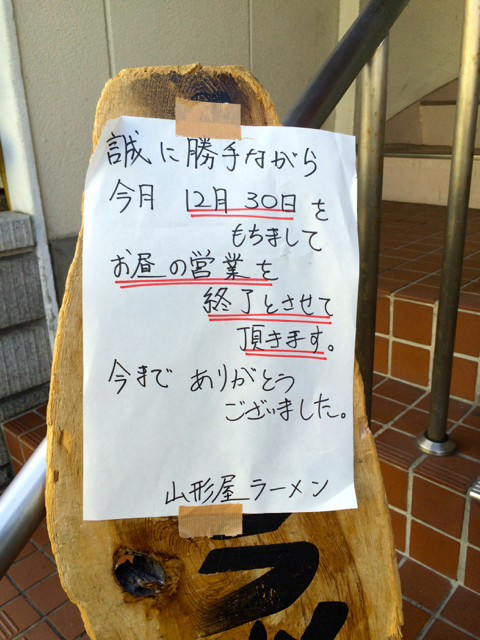 誠に勝手ながら
今月 12月 30日を
もちまして
お昼の営業を
終了とさせて
頂きます。
今まで ありがとう
ございました。
山形屋ラーメン